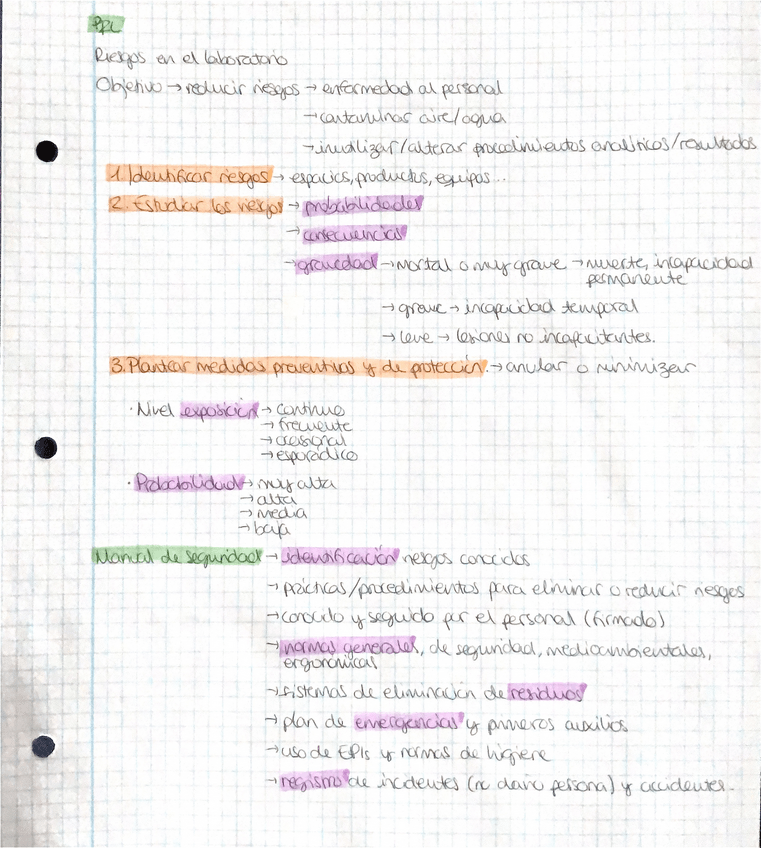 PRL
Riesgos en el laboratorio
Objetivo → reducir riesgos → enfermedad al personal
→ contaminar aire/agua
→ inutilizar/alterar procedimientos analíticos/resultados
1. Identificar riesgos → espacios, productos, equipos...
2. Estudiar los riesgos → probabilidades
→ consecuencias
→ gravedad → mortal o muy grave → muerte, incapacidad
permanente
→ grave → incapacidad temporal
→ leve → lesiones no incapacitantes.
3. Plantear medidas preventivas y de protección. → anular o minimizar
· Nivel exposición → continuo
→ frecuente
→ ocasional
→ esporádico
· Probabilidad → muy alta
→ alta
→ media
→ baja
Manual de seguridad → identificación riesgos conocidos
→ prácticas/procedimientos para eliminar o reducir riesgos
→ conocido y seguido por el personal (firmado)
→ normas generales, de seguridad, medioambientales,
ergonómicas
→ sistemas de eliminación de residuos
→ plan de emergencias y primeros auxilios
→ uso de EPIs y normas de higiene
→ registro de incidentes (no daño personal) y accidentes.